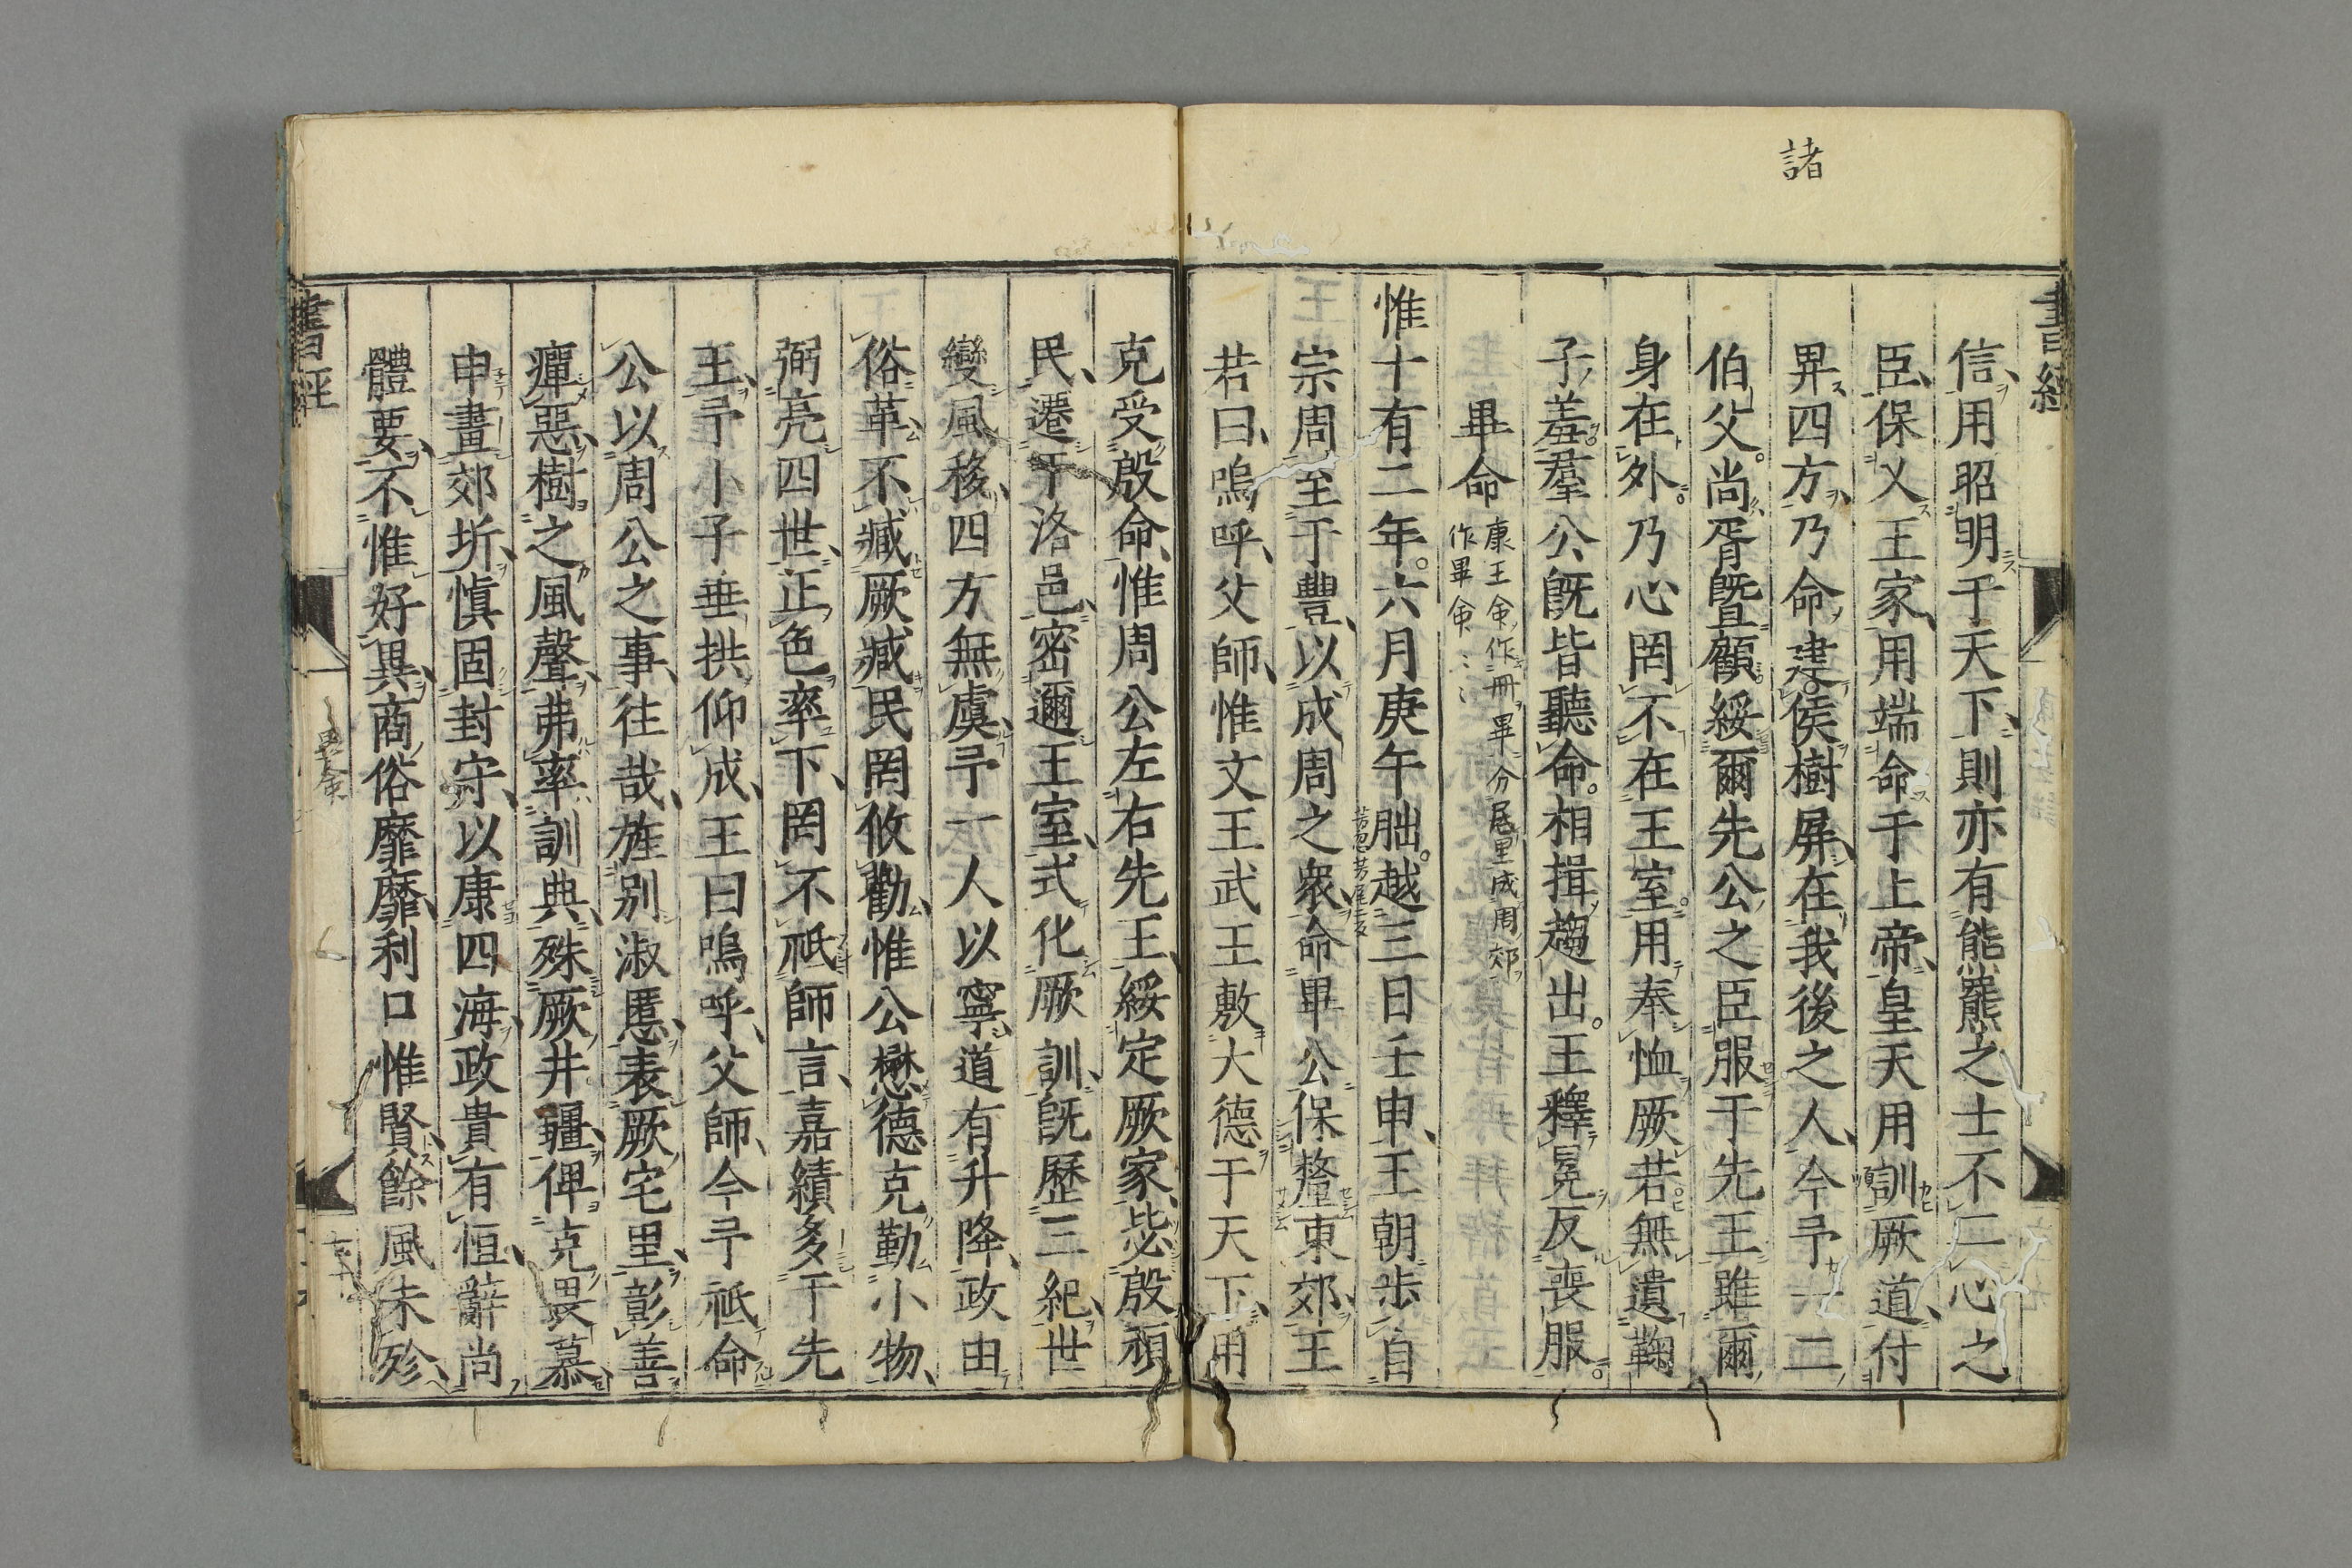 諸
信用昭明于天下則亦有熊羆之士不二心之
臣保乂王家用端命于上帝皇天用訓厥道付
畀四方乃命建侯樹屏在我後之人今予一二
伯父尚胥曁顧綏爾先公之臣服于先王雖爾
身在外乃心罔不在王室用奉恤厥若無遺鞠
子羞羣公旣皆聽命相揖趨出王釋冕反喪服
畢命
康王命作冊畢分居里成周郊
作畢命
惟十有二年六月庚午朏越三日壬申王朝步自
宗周至于豐以成周之衆命畢公保釐東郊王
若曰嗚呼父師惟文王武王敷大德于天下用
克受殷命惟周公左右先王綏定厥家毖殷頑
民遷于洛邑密邇王室式化厥訓旣歷三紀世
變風移四方無虞予一人以寧道有升降政由
俗革不臧厥臧民罔攸勸惟公懋德克勤小物
弼亮四世正色率下罔不祗師言嘉績多于先
王予小子垂拱仰成王曰嗚呼父師今予祗命
公以周公之事往哉旌別淑慝表厥宅里彰善
癉惡樹之風聲弗率訓典殊厥井疆俾克畏慕
申畫郊圻愼固封守以康四海政貴有恒辭尚
體要不惟好異商俗靡靡利口惟賢餘風未殄
書經
畢命